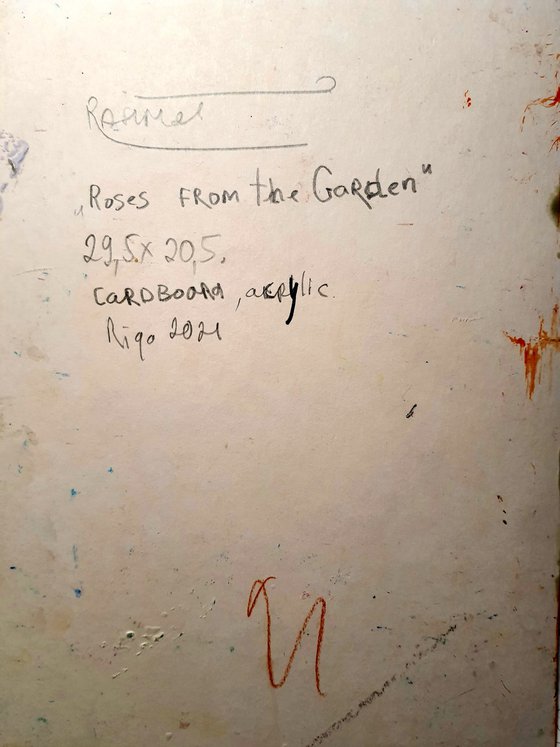 „Roses FROM the GaRden“
29,5 x 20,5.
CARDBOARD, aкRylic.
Riga 2021